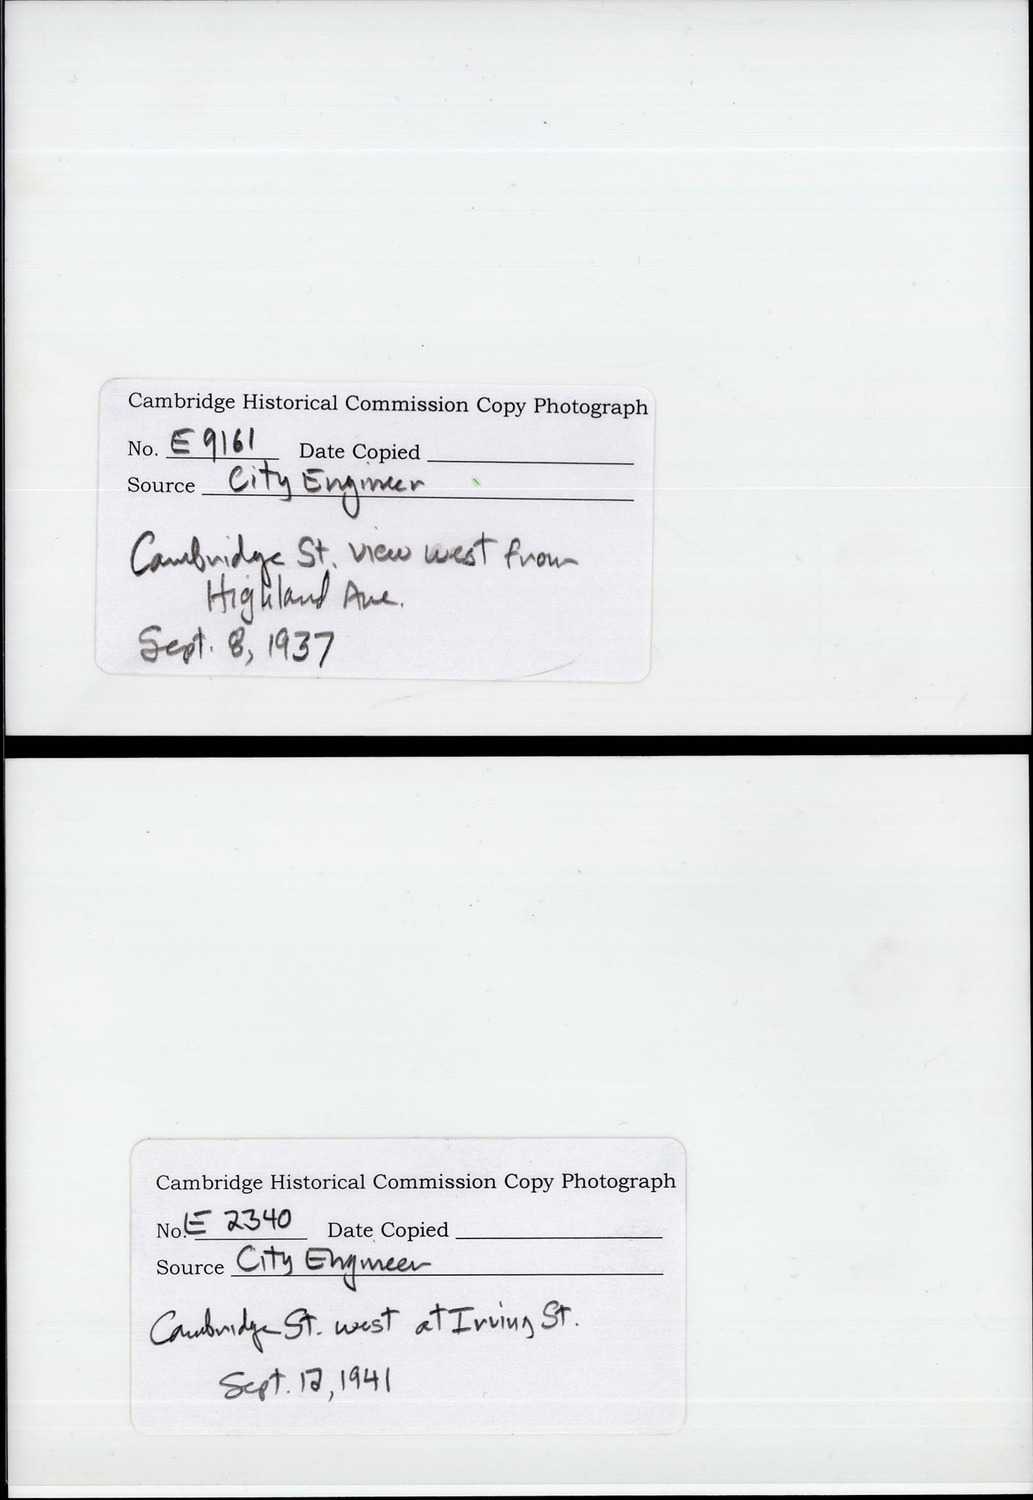 Cambridge Historical Commission Copy Photograph
No. E 9161 Date Copied
Source City Engineer
Cambridge St. view west from
Highland Ave.
Sept. 8, 1937
Cambridge Historical Commission Copy Photograph
No. E 2340 Date Copied
Source City Engineer
Cambridge St. west at Irving St.
Sept. 12, 1941